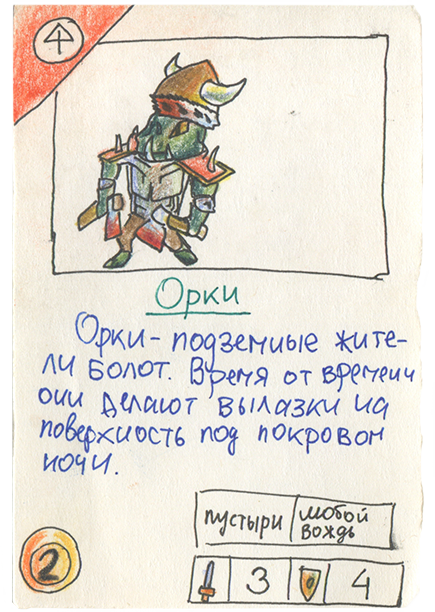 Орки
Орки - подземные жите-
ли болот. Время от времени
они делают вылазки на
поверхность под покровом
ночи.
пустыри любой
вождь
2 3 4